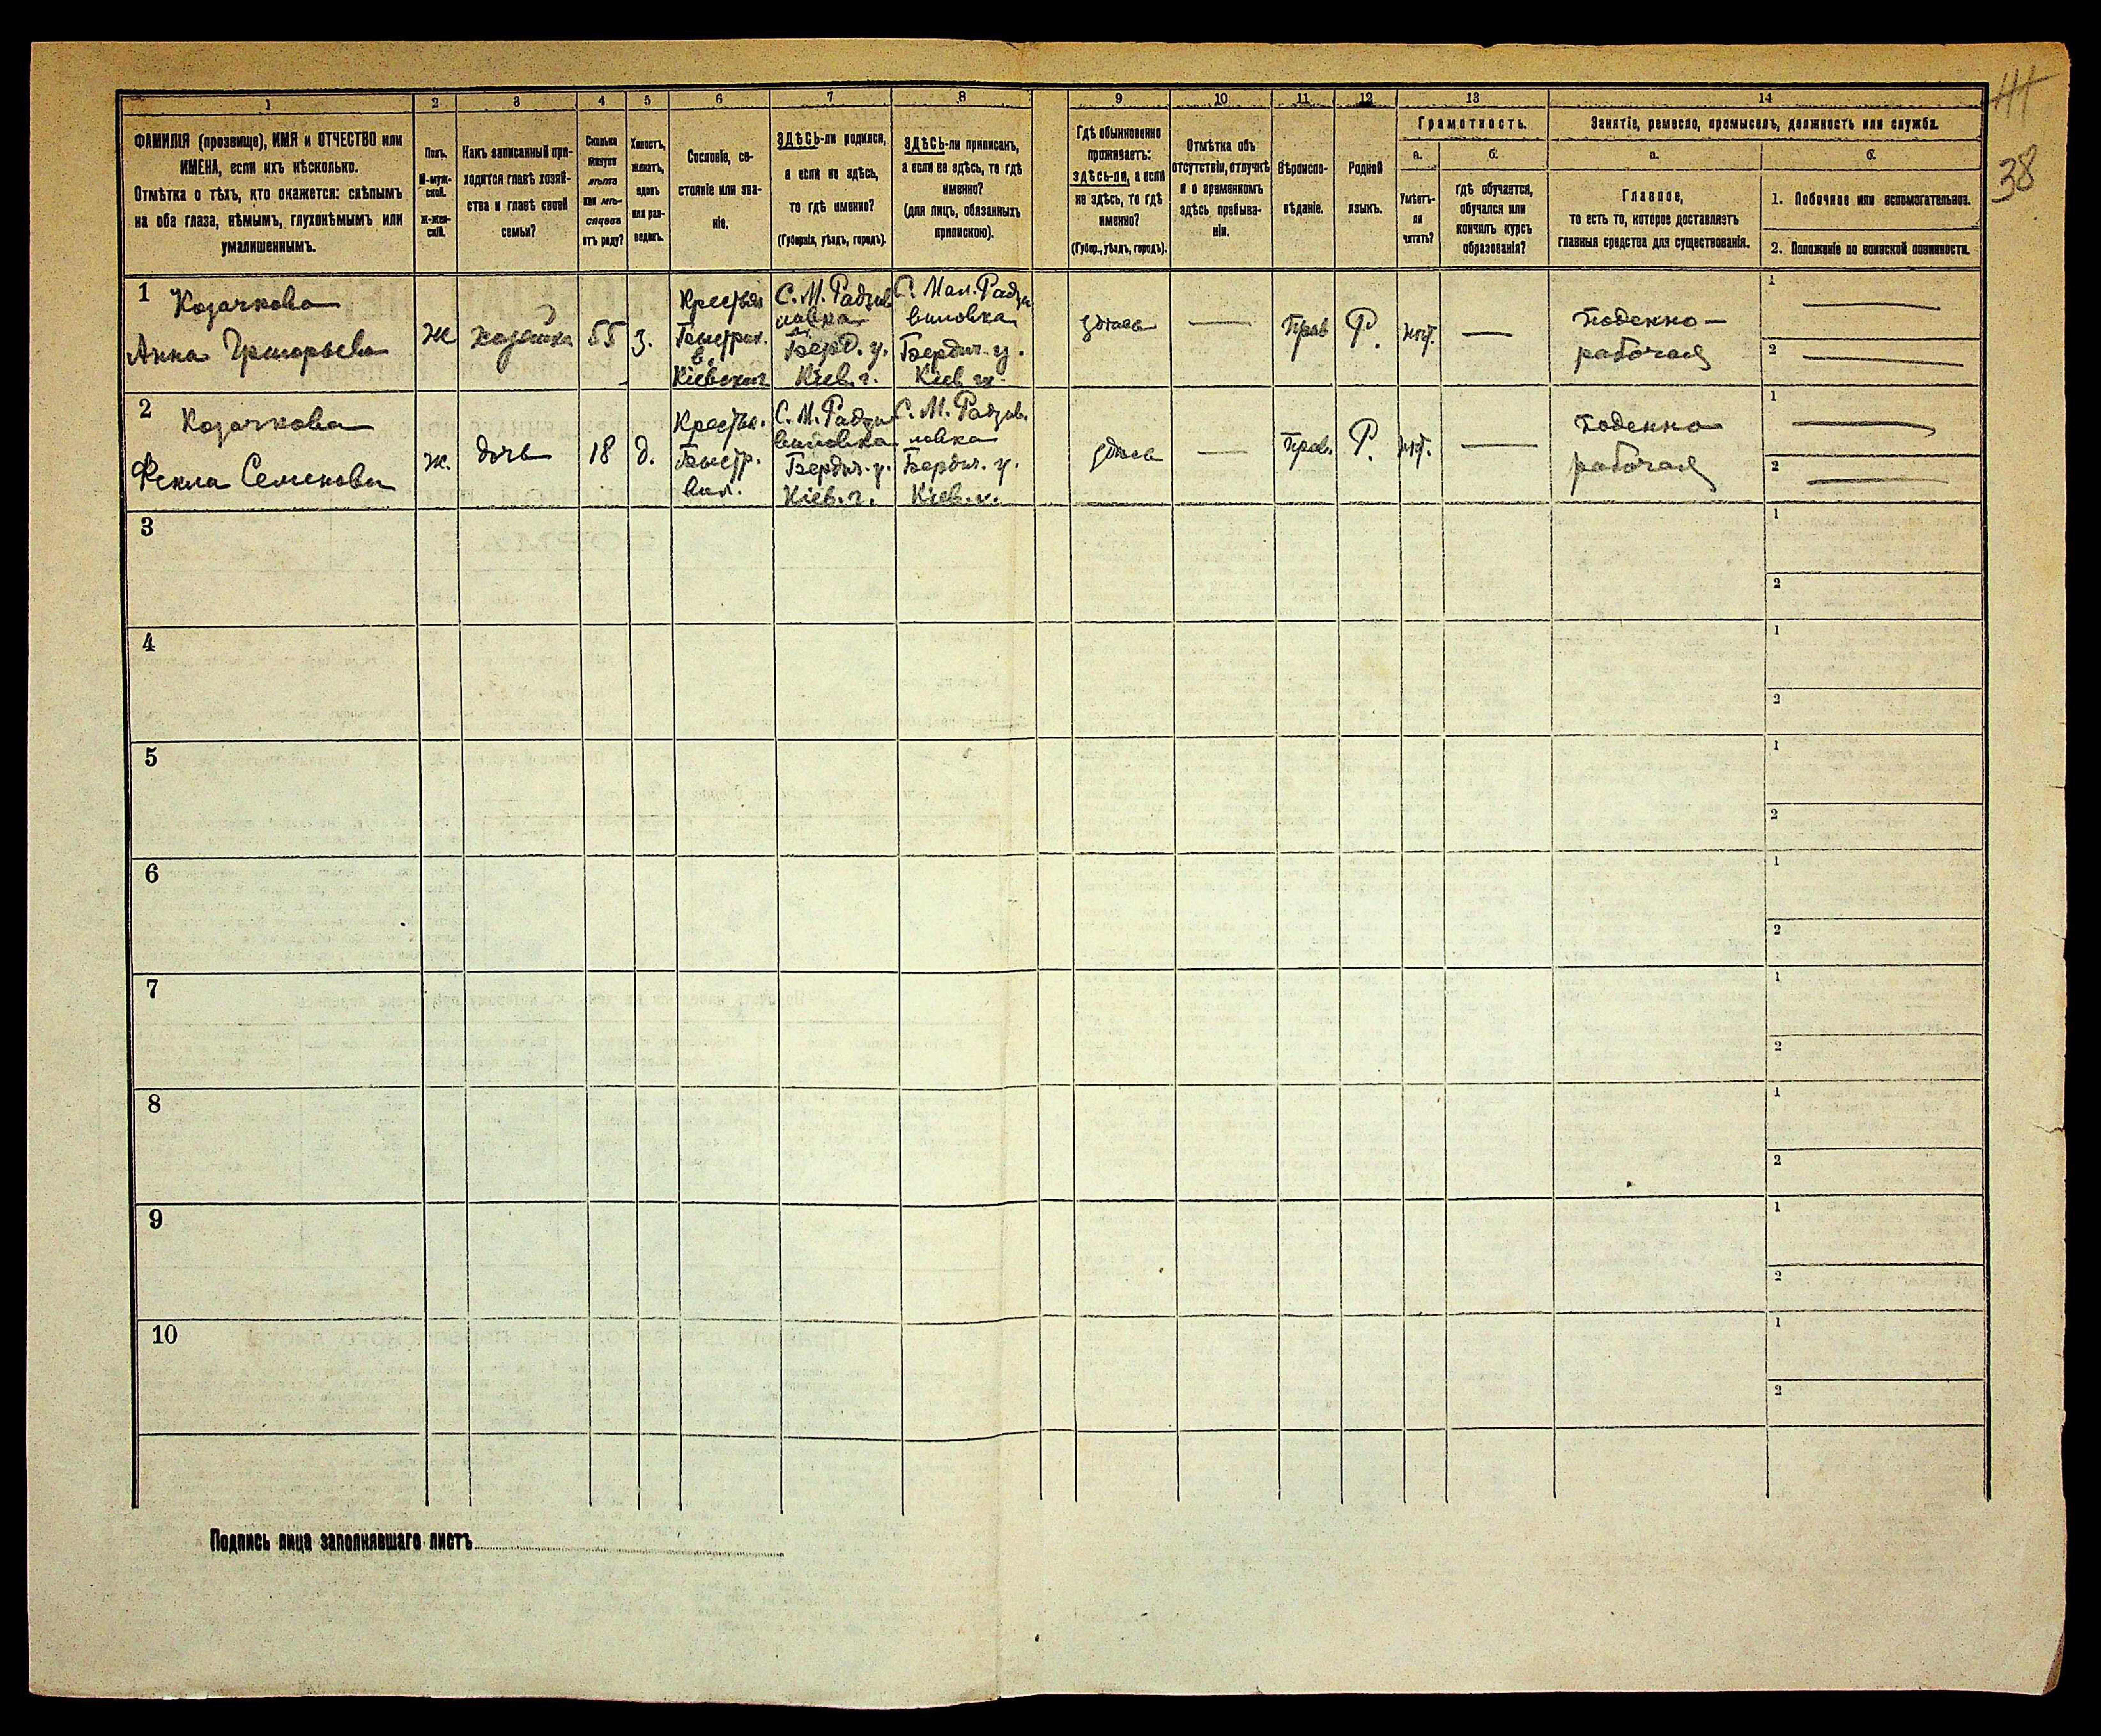 1 2 3 4 5 6 7 8 9 10 11 12 13 14
ФАМИЛІЯ (прозвище), ИМЯ и ОТЧЕСТВО или
ИМЕНА, если ихъ нѣсколько.
Отмѣтка о тѣхъ, кто окажется: слѣпымъ
на оба глаза, нѣмымъ, глухонѣмымъ или
умалишеннымъ.
Полъ.
М-муж-
ской.
Ж-жен-
скій.
Какъ записанный при-
ходится главѣ хозяй-
ства и главѣ своей
семьи?
Сколько
минуло
лѣтъ
или мѣ-
сяцевъ
отъ роду?
Холостъ,
женатъ,
вдовъ
или раз-
веденъ.
Сословіе, со-
стояніе или зва-
ніе.
ЗДѢСЬ-ли родился,
а если не здѣсь,
то гдѣ именно?
(Губернія, уѣздъ, городъ).
ЗДѢСЬ-ли приписанъ,
а если не здѣсь, то гдѣ
именно?
(для лицъ, обязанныхъ
припискою).
Гдѣ обыкновенно
проживаетъ:
здѣсь-ли, а если
не здѣсь, то гдѣ
именно?
(Губер., уѣздъ, городъ).
Отмѣтка объ
отсутствіи, отлучкѣ
и о временномъ
здѣсь пребыва-
ніи.
Вѣроиспо-
вѣданіе.
Родной
языкъ.
Грамотность.
а.
Умѣетъ-
ли
читать?
б.
гдѣ обучается,
обучался или
кончилъ курсъ
образованія?
Занятіе, ремесло, промыселъ, должность или служба.
а.
Главное,
то есть то, которое доставляетъ
главныя средства для существованія.
б.
1. Побочное или вспомогательное.
2. Положеніе по воинской повинности.
38
1 Козачкова
Анна Григорьева
Ж
хозяйка
55
з.
Крестьян
Быстрик.
в.
Кіевской
С. М. Радзив
иловка
Берд. у.
Кіев. г.
С. Мал. Радзи
виловка
Бердич. у.
Кіев. г.
здѣсь
Прав
Р.
нѣт.
Поденно-
рабочая
1
2
2 Козачкова
Фекла Семенова
ж.
дочь
18
д.
Крестья.
Быстр.
вол.
С. М. Радзи
виловка
Бердич. у.
Кіев. г.
С. М. Радзив.
ловка
Бердич. у.
Кіев. г.
здѣсь
Прав.
Р.
нѣт.
Поденно
рабочая
1
2
3
1
2
4
1
2
5
1
2
6
1
2
7
1
2
8
1
2
9
1
2
10
1
2
Подпись лица заполнявшаго листъ